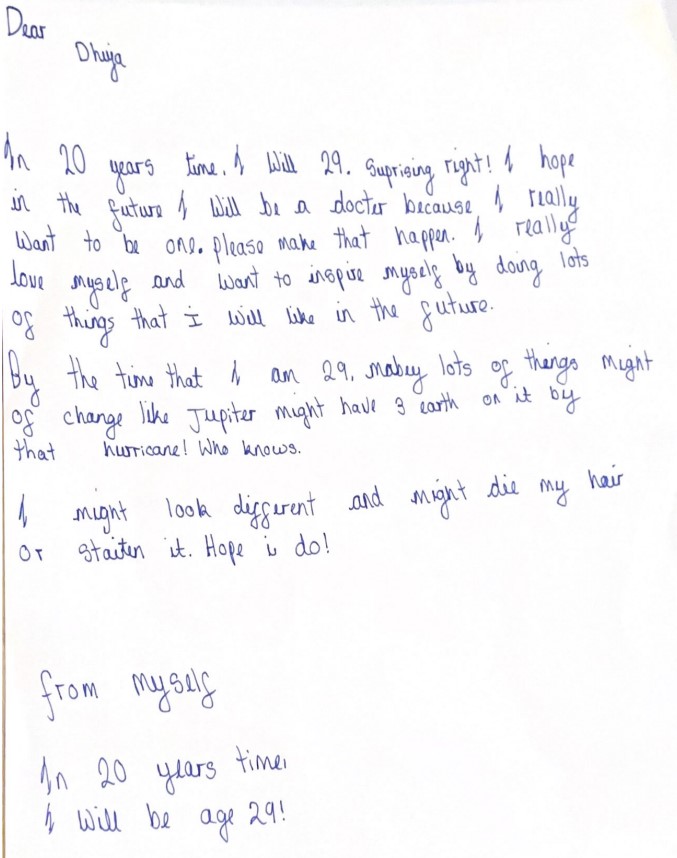 Dear
Dhuja
In 20 years time. I Will 29. Suprising right! I hope
in the future I Will be a docter because I really
Want to be one. please make that happen. I really
love myself and want to inspire myself by doing lots
of things that I will like in the future.
By the time that I am 29, mabey lots of things might
of change like Jupiter might have 3 earth on it by
that hurricane! Who knows.
I might look different and might die my hair
or staiten it. Hope i do!
from myself
In 20 years time,
I Will be age 29!